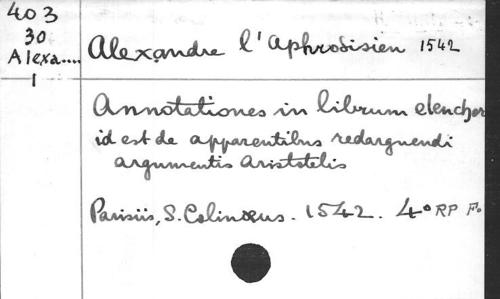 403
30
Alexa.....
1
Alexandre l'Aphrodisien 1542
Annotationes in librum elenchor
id est de apparentibus redarguendi
argumentis Aristotelis
Parisiis, S. Colinæus. 1542. 4° RP F.